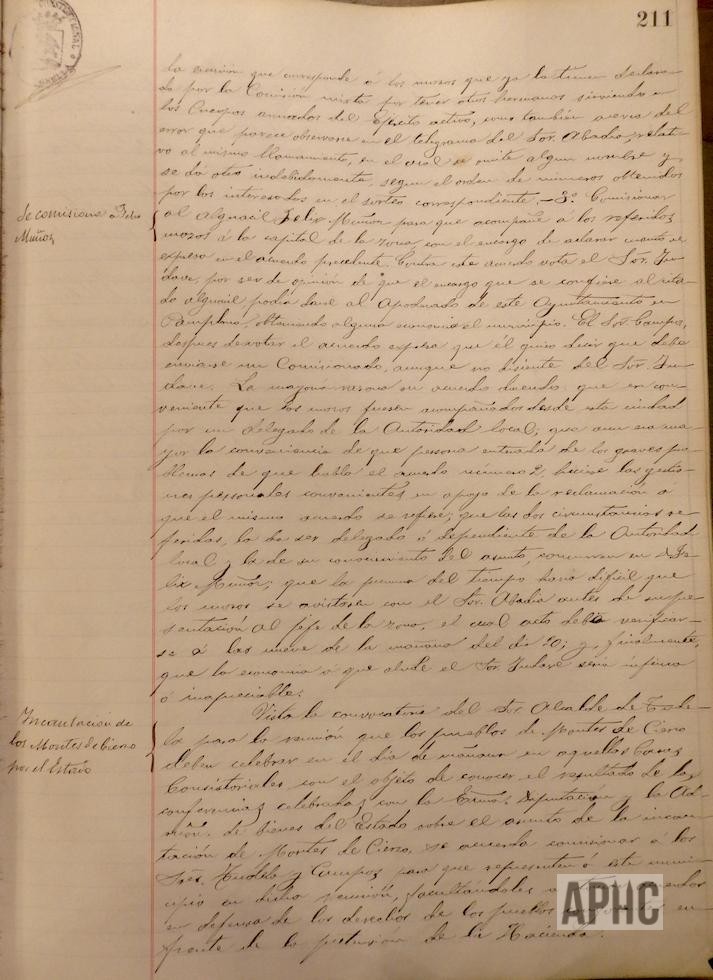 211
la exención que corresponde á los mozos que ya la tienen declara-
da por la Comisión mixta por tener otros hermanos sirviendo en
los Cuerpos armados del Ejército activo, como también acerca del
error que parece observarse en el telegrama del Sor. Abadia, relati-
vo al mismo llamamiento, en el cual se omite algun nombre y
se dá otro indebidamente, segun el orden de números obtenidos
por los interesados en el sorteo correspondiente. - 3º Comisionar
al alguacil Felix Muñoz para que acompañe á los referidos
mozos á la capital de la zona con el encargo de aclarar cuanto se
expresa en el acuerdo precedente. Contra este acuerdo vota el Sor. Fu-
dave, por ser de opinión de que el encargo que se confiere al cita-
do alguacil podía darse al Apoderado de este Ayuntamiento en
Pamplona, obteniendo alguna economía el municipio. El Sor. Campos,
despues de votar el acuerdo expresa que él quiso decir que debe
enviarse un Comisionado, aunque no disiente del Sor.
La mayoría razona su acuerdo diciendo: que es con-
veniente que los mozos fuesen acompañados desde esta ciudad
por un delegado de la Autoridad local; que aun era ma-
yor la conveniencia de que persona enterada de los graves pro-
blemas de que habla el acuerdo número 2, hiciese las gestio-
nes personales convenientes en apoyo de la reclamación á
que el mismo acuerdo se refiere; que las dos circunstancias re-
feridas, la de ser delegado ó dependiente de la Autoridad
local y la de su conocimiento del asunto, concurren en D. Fe-
lix Muñoz; que la premura del tiempo haría difícil que
los mozos se avistasen con el Sor. Abadia antes de su pre-
sentación al jefe de la zona, el cual acto debía verificar-
se á las nueve de la mañana del día 20; y, finalmente,
que la economía á que alude el Sor. sería ínfima
ó inapreciable.
Vista la convocatoria del Sor. Alcalde de Tude-
la para la reunión que los pueblos de Montes de Cierzo
deben celebrar en el día de mañana en aquellas Casas
Consistoriales con el objeto de conocer el resultado de las
conferencias celebradas con la Excma. Diputación y la Ad-
món. de bienes del Estado sobre el asunto de la incau-
tación de Montes de Cierzo, se acuerda comisionar á los
Sres. y Campos para que representen á este muni-
cipio en dicha reunión, facultándoles
en defensa de los derechos de los pueblos en-
frente de la pretensión de la Hacienda.
Se comisiona a Felix
Muñoz
Incautación de
los Montes de Cierzo
por el Estado
APHC